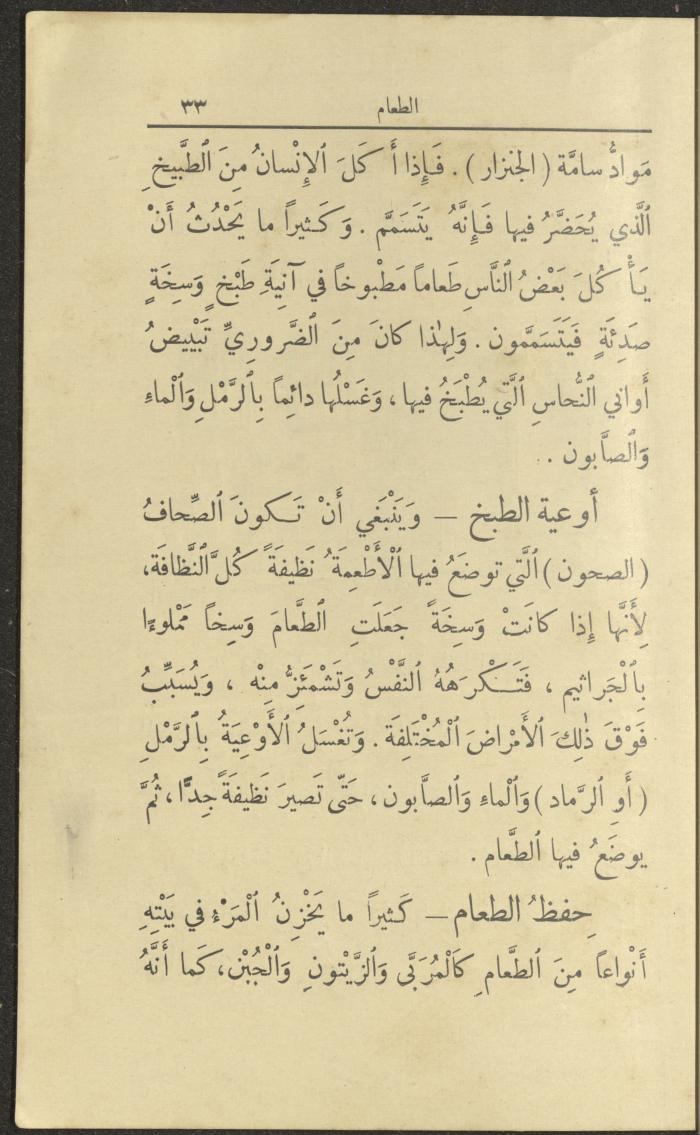 الطعام ٣٣
مَوادُّ سامَّة ( الجنزار ) . فَإِذا أَكَلَ ٱلإِنْسانُ مِنَ ٱلطَّبيخِ
ٱلَّذي يُحَضَّرُ فيها فَإِنَّهُ يَتَسَمَّم . وَكَثيراً ما يَحْدُثُ أَنْ
يَأْكُلَ بَعْضُ ٱلنَّاسِ طَعاماً مَطْبوخاً في آنِيَةِ طَبْخٍ وَسِخَةٍ
صَدِئَةٍ فَيَتَسَمَّمون . وَلِهٰذا كانَ مِنَ ٱلضَّرورِيِّ تَبْييضُ
أَواني ٱلنُّحاسِ ٱلَّتي يُطْبَخُ فيها ، وَغَسْلُها دائِماً بِٱلرَّمْلِ وَٱلْماءِ
وَٱلصابون .
أوعية الطبخ – وَيَنْبَغي أَنْ تَكونَ ٱلصِّحافُ
( الصحون ) ٱلَّتي توضَعُ فيها ٱلْأَطْعِمَةُ نَظيفَةً كُلَّ ٱلنَّظافَة ،
لِأَنَّها إِذا كانَتْ وَسِخَةً جَعَلَتِ ٱلطَّعامَ وَسِخاً مَمْلوءًا
بِٱلْجَراثيم ، فَتَكْرَهُهُ ٱلنَّفْسُ وَتَشْمَئِزُّ مِنْه ، وَيُسَبِّبُ
فَوْقَ ذٰلِكَ ٱلأَمْراضَ ٱلْمُخْتَلِفَة . وَتُغْسَلُ ٱلأَوْعِيَةُ بِٱلرَّمْلِ
( أَوِ ٱلرَّماد ) وَٱلْماءِ وَٱلصابون ، حَتّى تَصيرَ نَظيفَةً جِدًّا ، ثُمَّ
يوضَعُ فيها ٱلطَّعام .
حِفظُ الطعام – كَثيراً ما يَخْزِنُ ٱلْمَرْءُ في بَيْتِهِ
أَنْواعاً مِنَ ٱلطَّعامِ كَٱلْمُرَبَّى وَٱلزَّيْتونِ وَٱلْجُبْن ، كَما أَنَّهُ